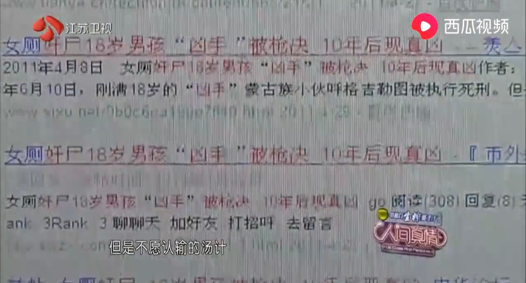 江苏卫视
西瓜视频
女厕奸尸18岁男孩“凶手”被枪决 10年后现真凶
2011年4月8日 女厕奸尸18岁男孩“凶手”被枪决 10年后现真凶作者:
年6月10日，刚满18岁的“凶手”蒙古族小伙呼格吉勒图被执行死刑。但
女厕奸尸18岁男孩“凶手”被枪决 10年后现真凶 -『币外
女厕奸尸18岁男孩“凶手”被枪决 10年后现真凶 go 阅读(308) 回复(8)
ank 3Rank 3 聊聊天 加好友 打招呼 去留言
人间真情
但是不愿认输的汤计